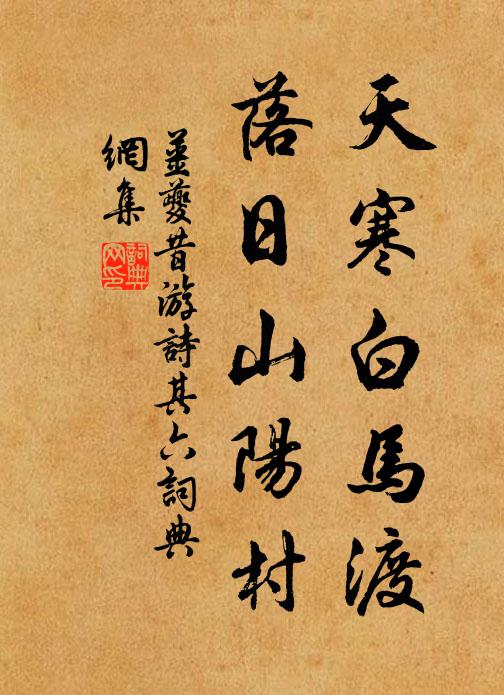 天寒白馬渡
落日山陽村
姜夔昔游詩其六詞典
網集
詞典
网印